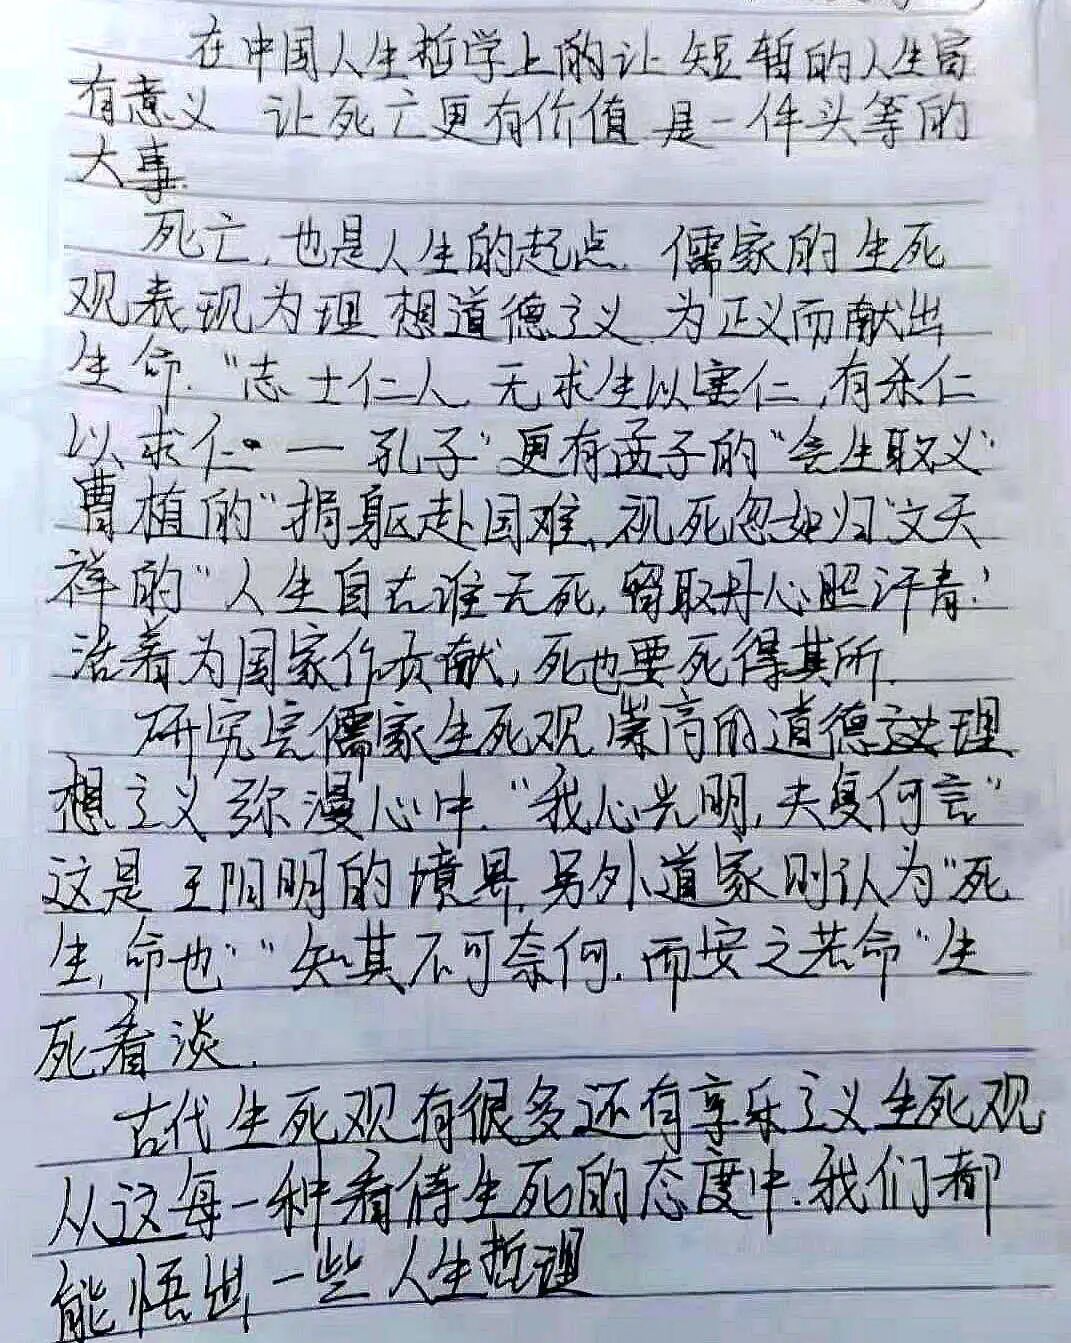 在中国人生哲学上的让短暂的人生富
有意义 让死亡更有价值 是一件头等的
大事.
死亡,也是人生的起点. 儒家的生死
观表现为理想道德主义 为正义而献出
生命."志士仁人 无求生以害仁,有杀仁
以求仁。— 孔子"更有孟子的"舍生取义"
曹植的"捐躯赴国难,视死忽如归"文天
祥的"人生自古谁无死,留取丹心照汗青!
活着为国家作贡献,死也要死得其所.
研究完儒家生死观 崇高的道德理
想主义弥漫心中."我心光明,夫复何言"
这是王阳明的境界.另外道家则认为"死
生,命也""知其不可奈何.而安之若命"生
死看淡.
古代生死观有很多还有享乐主义生死观
从这每一种看待生死的态度中.我们都
能悟出一些人生哲理